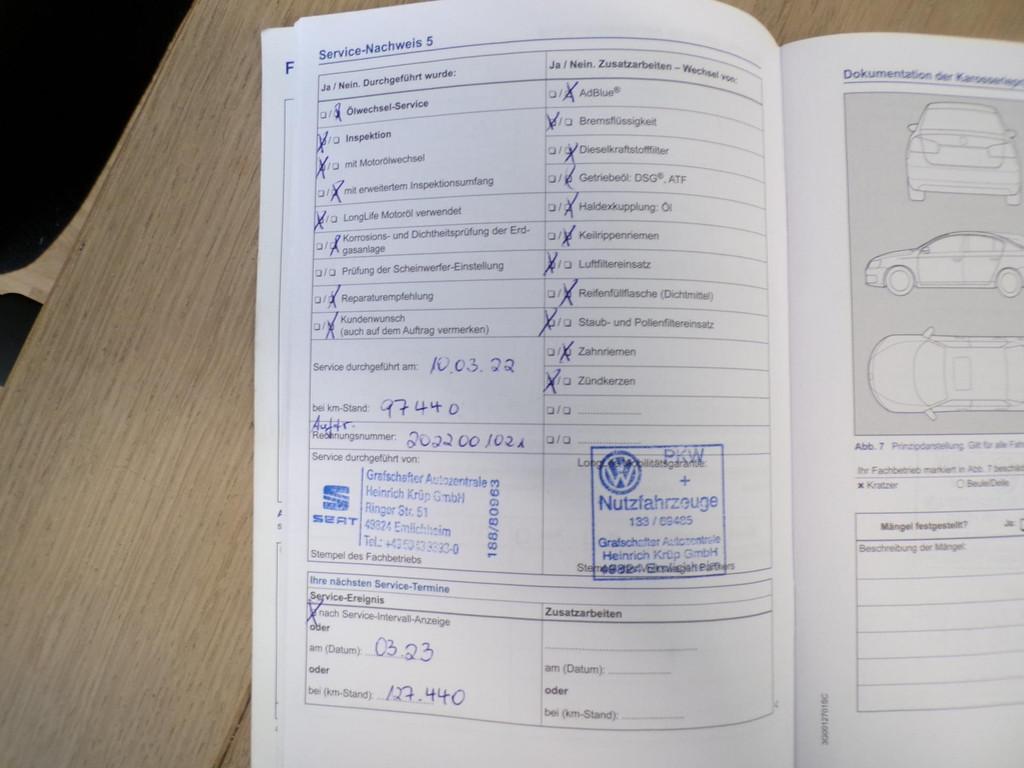 Service-Nachweis 5
Ja / Nein. Durchgeführt wurde:
Ölwechsel-Service
Inspektion
mit Motorölwechsel
mit erweitertem Inspektionsumfang
LongLife Motoröl verwendet
Korrosions- und Dichtheitsprüfung der Erd-
gasanlage
Prüfung der Scheinwerfer-Einstellung
Reparaturempfehlung
Kundenwunsch
(auch auf dem Auftrag vermerken)
Service durchgeführt am: 10.03.22
bei km-Stand: 97440
Auftr.
Rechnungsnummer: 2022001021
Service durchgeführt von:
SEAT
Grafschafter Autozentrale
Heinrich Krüp GmbH
Ringer Str. 51
49824 Emlichheim
Tel.:
188/80963
Stempel des Fachbetriebs
Ja / Nein. Zusatzarbeiten – Wechsel von:
AdBlue®
Bremsflüssigkeit
Dieselkraftstofffilter
Getriebeöl: DSG®, ATF
Haldexkupplung: Öl
Keilrippenriemen
Luftfiltereinsatz
Reifenfüllflasche (Dichtmittel)
Staub- und Pollenfiltereinsatz
Zahnriemen
Zündkerzen
PKW
+
Nutzfahrzeuge
133 / 69485
Grafschafter Autozentrale
Heinrich Krüp GmbH
49824 Emlichheim
Ihre nächsten Service-Termine
Service-Ereignis
nach Service-Intervall-Anzeige
oder
am (Datum): 03.23
oder
bei (km-Stand): 127.440
Zusatzarbeiten
am (Datum):
oder
bei (km-Stand):
F
Dokumentation der
Abb. 7 Prinzipdarstellung. Gilt für alle
Ihr Fachbetrieb markiert in Abb. 7
x Kratzer
Beule/Delle
Mängel festgestellt? Ja:
Beschreibung der Mängel:
3G0012701SC